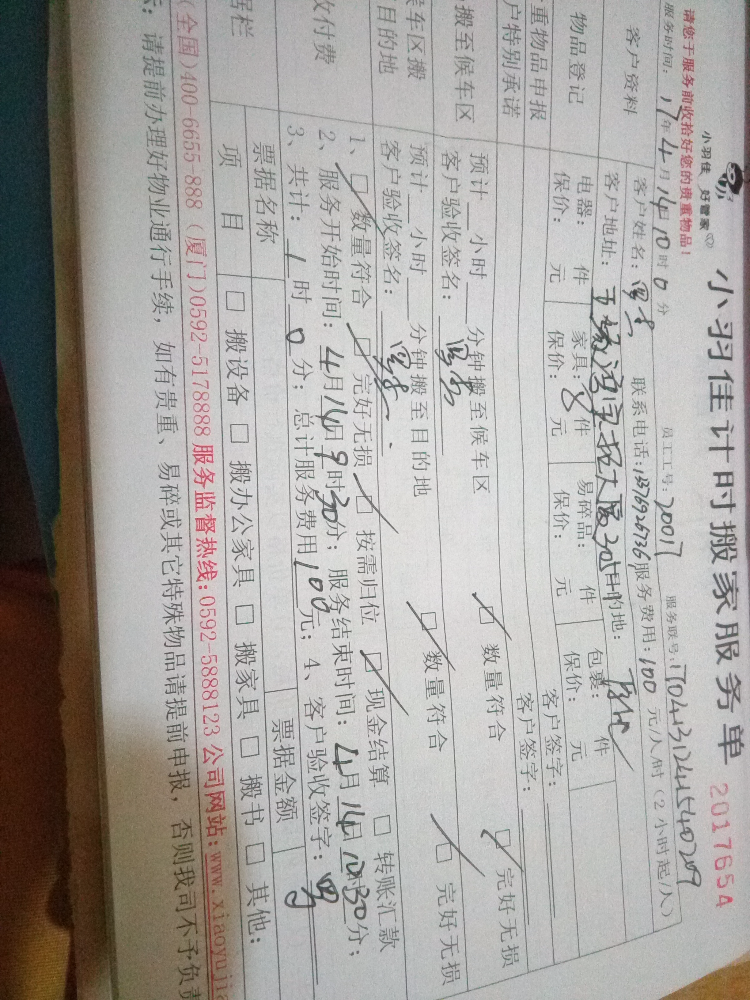 小羽佳 好管家
小羽佳计时搬家服务单
2017654
请您于服务前收拾好您的贵重物品！
员工工号：20017
服务联号：
服务时间：17年4月14日10时0分
客户资料
客户姓名：
联系电话：
服务费用：100 元/人/时（2小时起/人）
客户地址：
目的地：
物品登记
电器： 件 家具：8件 易碎品： 件 包裹： 件
保价： 元 保价： 元 保价： 元 保价： 元
重物品申报
户特别承诺
客户签字：
客户签字：
搬至候车区
预计 小时 分钟搬至候车区
客户验收签名：
□ 数量符合
□ 完好无损
候车区搬
目的地
预计 小时 分钟搬至目的地
客户验收签名：
□ 数量符合
□ 完好无损
收付费
1、□ 数量符合 □ 完好无损 □ 按需归位 □ 现金结算 □ 转账汇款
2、服务开始时间：4月14日9时30分；服务结束时间：4月14日10时30分；
3、共计：1时0分；总计服务费用100元；4、客户验收签字：
据栏
票据名称
票据金额
项 目
□ 搬设备 □ 搬办公家具 □ 搬家具 □ 搬书 □ 其他：
(全国)400-6655-888 (厦门)0592-5178888 服务监督热线：0592-5888123 公司网站：www.xiaoyujia
示：请提前办理好物业通行手续，如有贵重、易碎或其它特殊物品请提前申报，否则我司不予负责